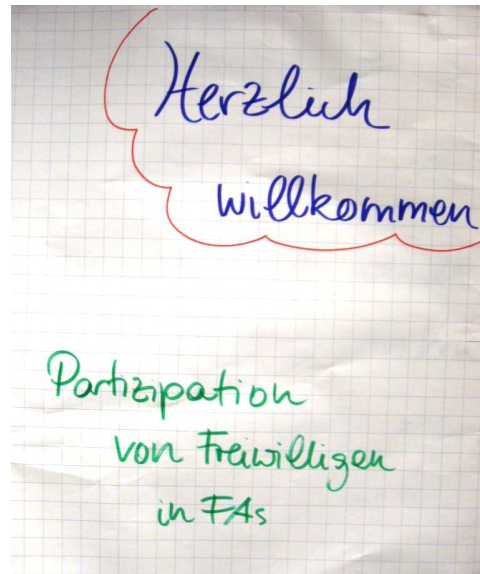 Herzlich
willkommen
Partizipation
von Freiwilligen
in FAs